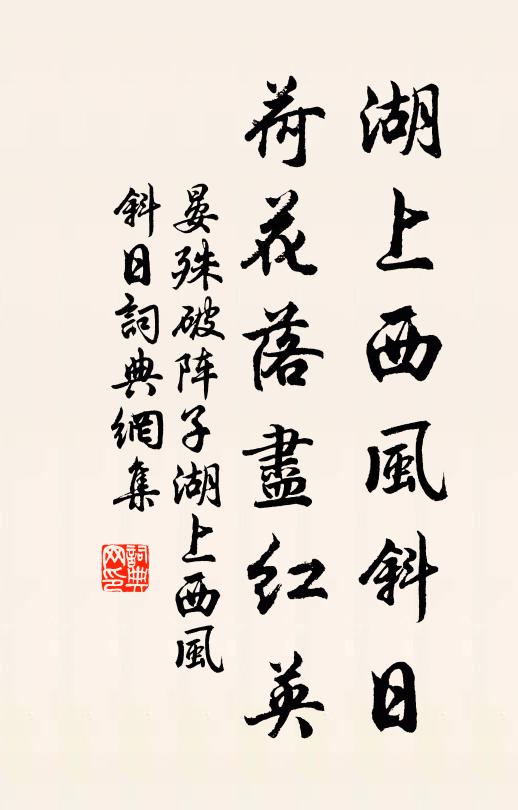 湖上西風斜日
荷花落盡紅英
晏殊破阵子湖上西風
斜日詞典網集
詞典网印